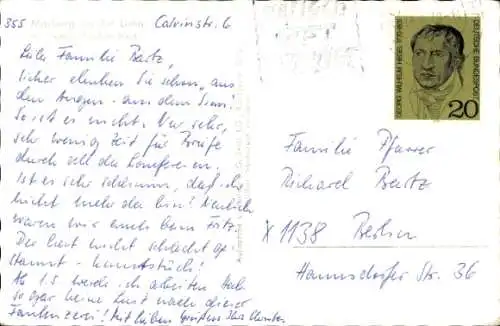 355 Marburg an der Lahn Calvinstr. 6
Liebe Familie Bartz,
sicher denken Sie schon, aus
den Augen - aus dem Sinn!
So ist es nicht. Nur sehr,
sehr wenig Zeit für Briefe
durch all die Konferenzen.
Ist es sehr schlimm, daß ich
nicht mehr da bin! Neulich
waren wir auch beim Fritz.
Der hat nicht schlecht ge-
staunt - Kunststück!
Ab 1.5. werde ich arbeiten. Hab
sogar keine Lust nach dieser
Faulenzerei! Mit lieben Grüßen Ihre
DEUTSCHE BUNDESPOST
GEORG WILHELM HEGEL 1770-1831
20
Familie Pfarrer
Richard Bartz
X 1138 Berlin
Str. 36